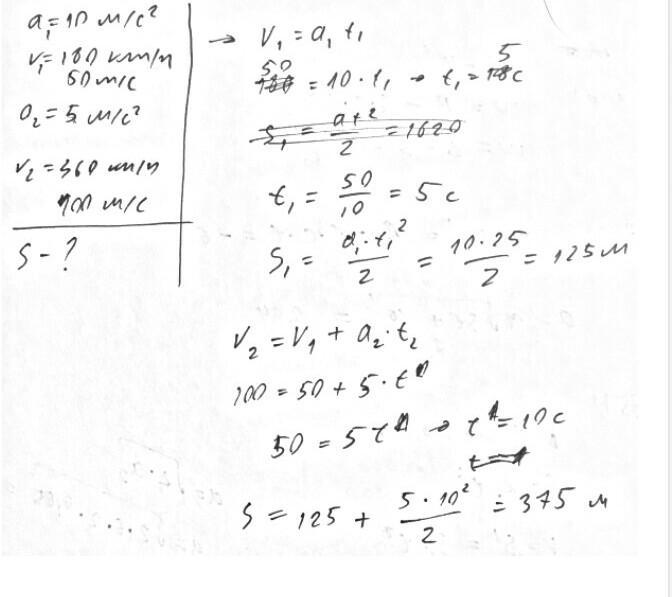 a₁=10 м/с²
v₁=180 км/ч
50 м/с
a₂=5 м/с²
v₂=360 км/ч
100 м/с
S - ?
→ V₁ = a₁ t₁
50 = 10 · t₁ → t₁ = 5 c
S₁ = at²/2 = 1620
t₁ = 50/10 = 5 c
S₁ = a₁·t₁²/2 = 10·25/2 = 125 м
V₂ = V₁ + a₂·t₂
100 = 50 + 5 · t
50 = 5t → t = 10 c
S = 125 + 5·10²/2 = 375 м